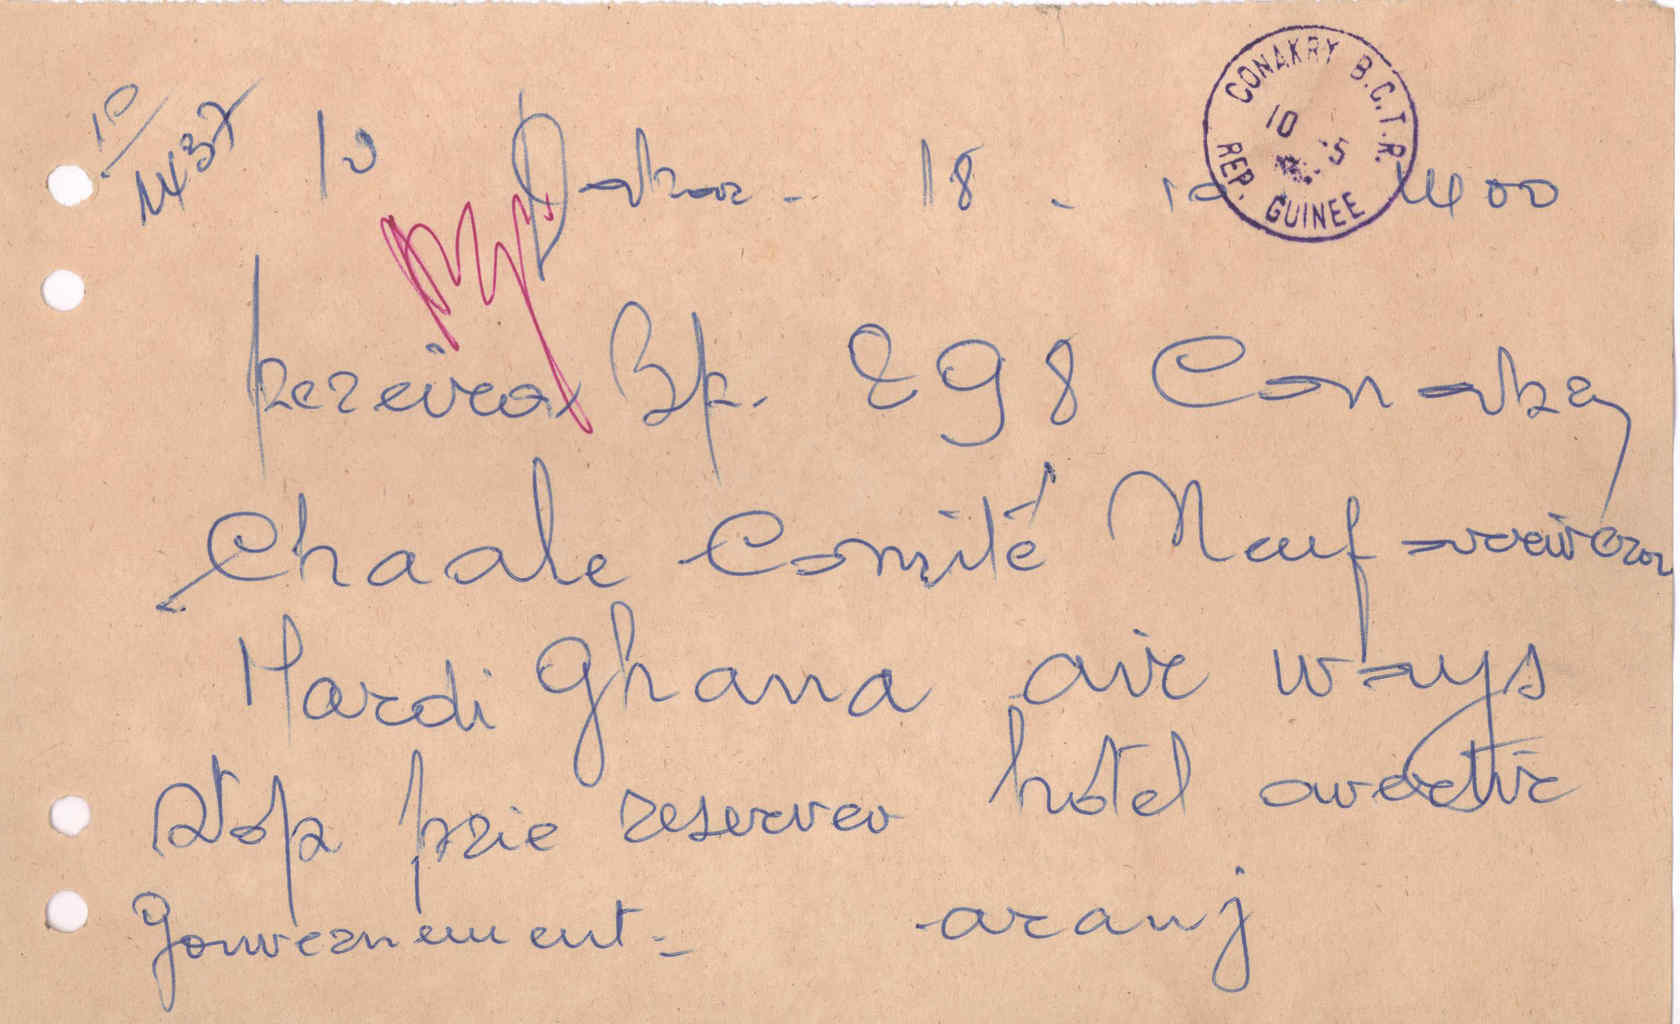 10
1437
10 Dakar - 18 - 10 1400
CONAKRY B.C.T.R.
10 -5
REP. GUINEE
pereira Bp. 898 Conakry
Chaale Comité Neuf
Mardi Ghana air ways
stop prie reserver hôtel avertir
Gouvernement - aranj